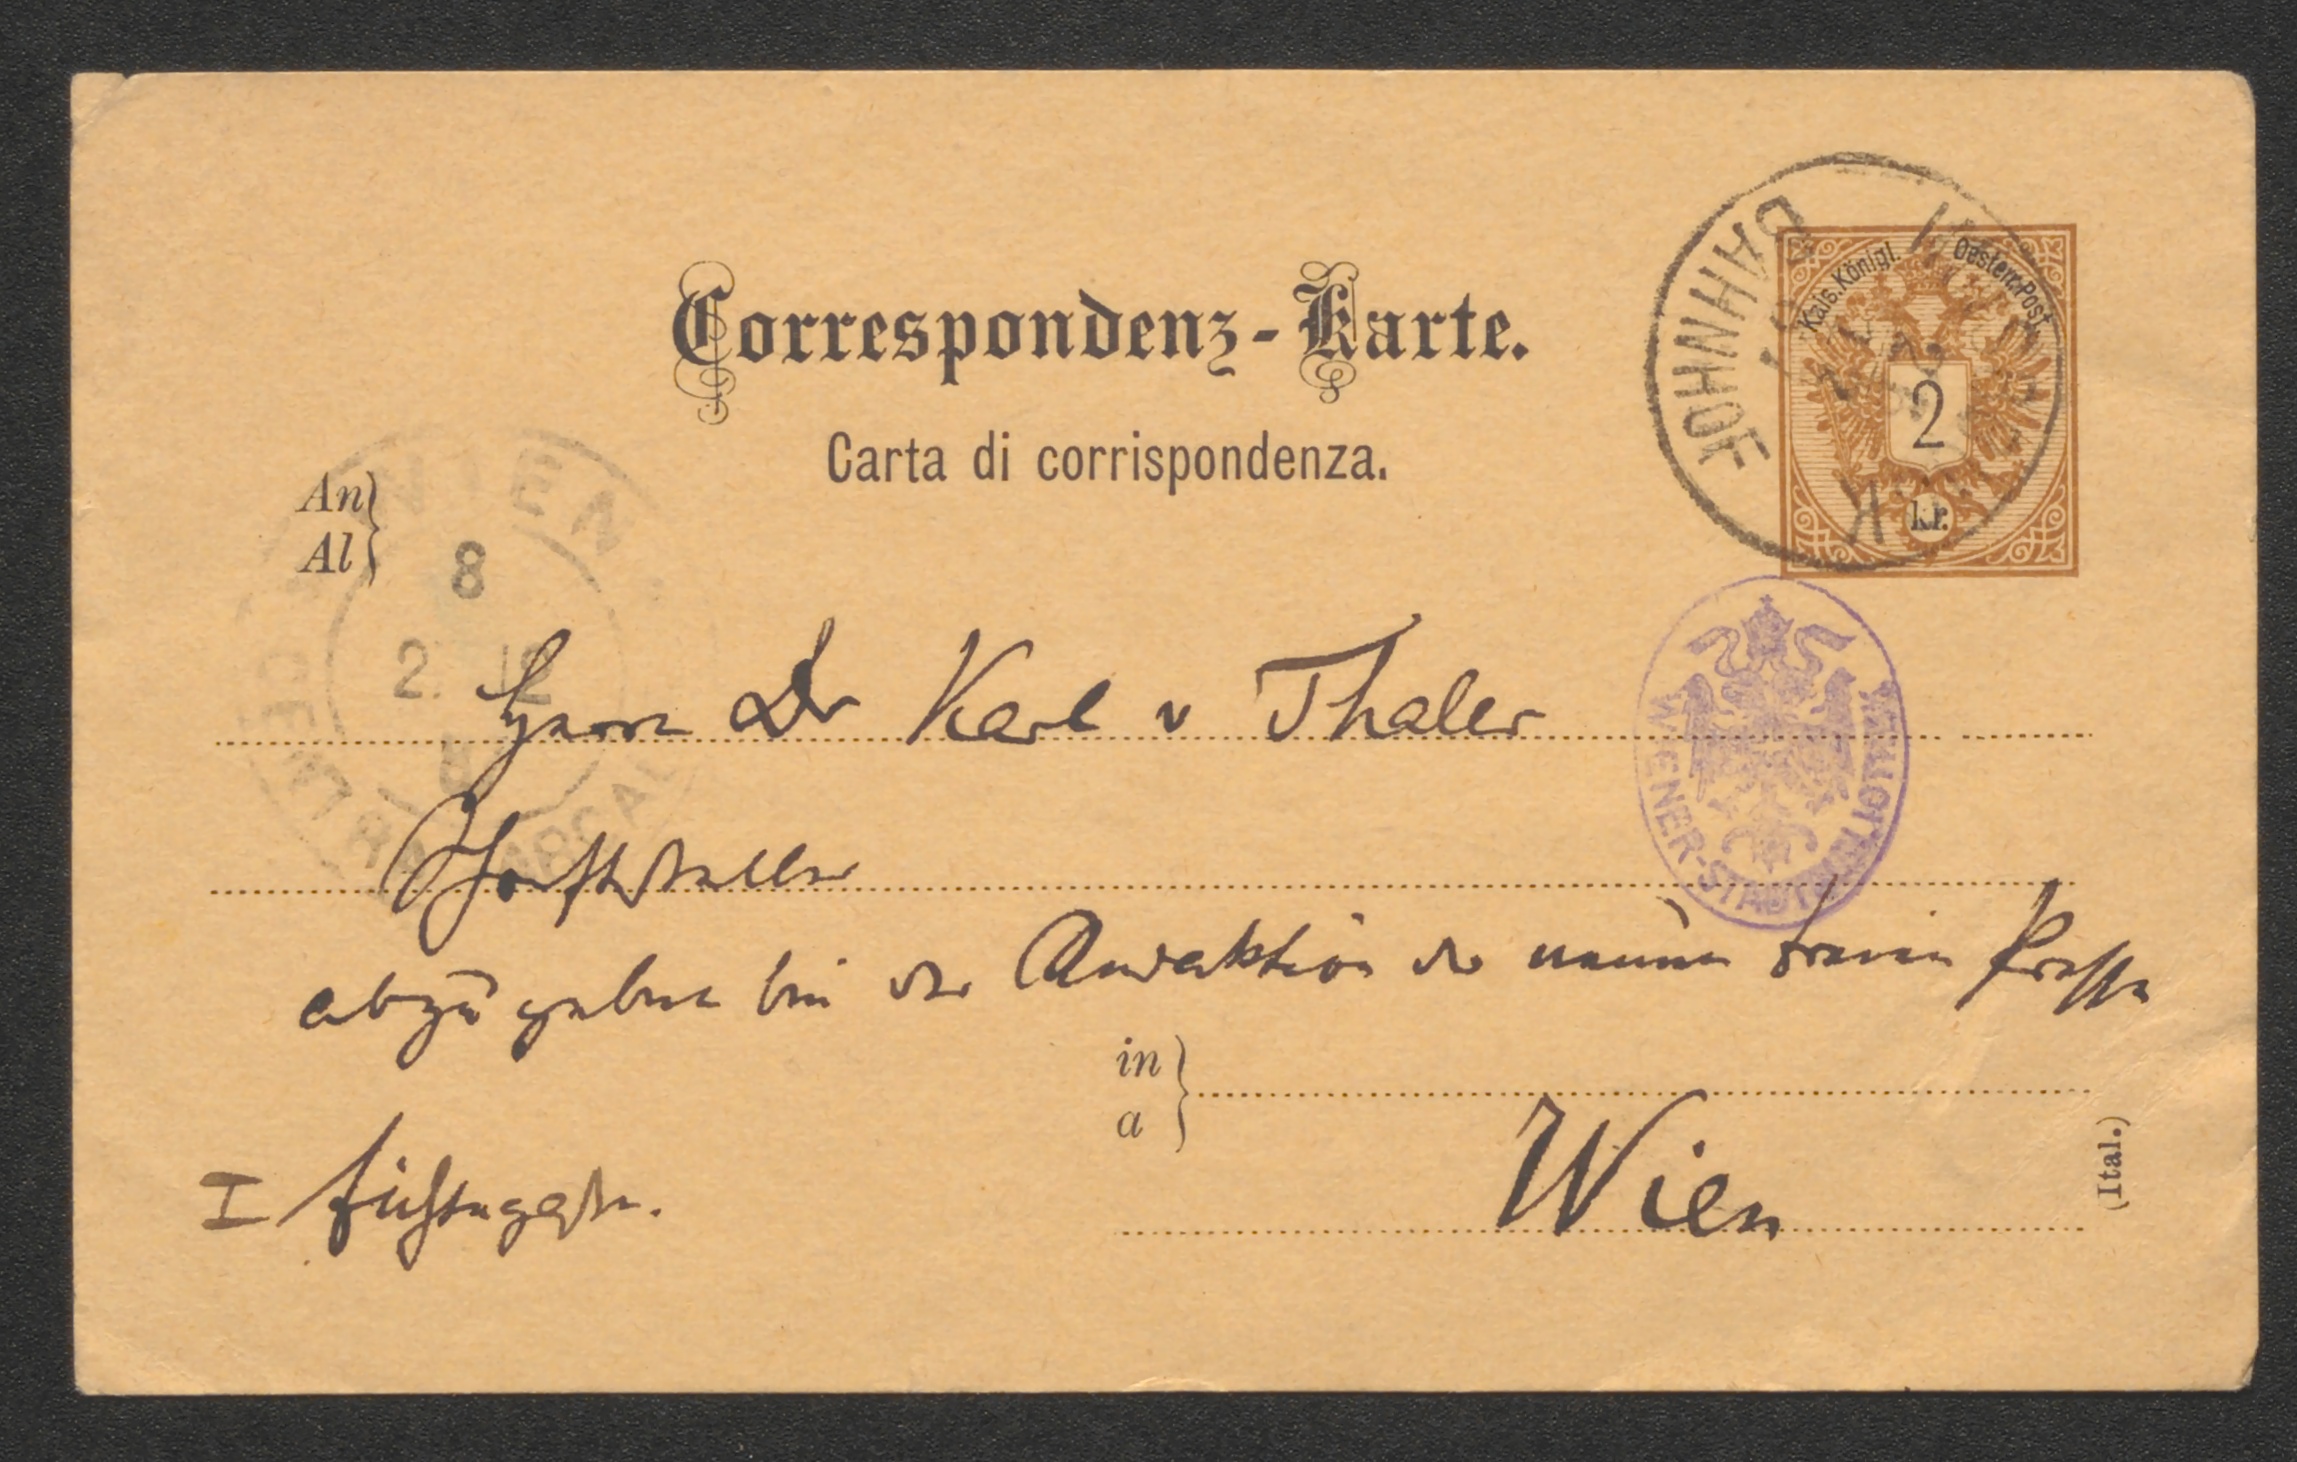 Correspondenz-Karte.
Carta di corrispondenza.
Kais. Königl. Oesterr. Post
2
kr.
BAHNHOF
An
Al
WIEN
8
2. 12
CENTRAL
Herrn Dr Karl v Thaler
Schriftsteller
WIENER-STADTBIBLIOTHEK
abzugeben bei der Redaktion der neuen freien Presse
in
a
I Fichtegasse.
Wien
(Ital.)